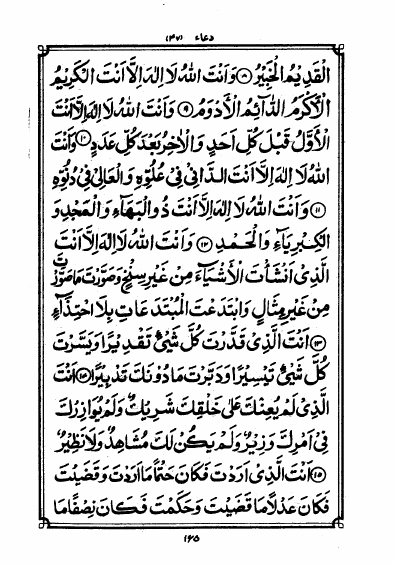 دعاء (۴۷)
الْقَدِيْمُ الْخَبِيْرُ ⑧ وَاَنْتَ اللهُ لَا اِلٰهَ اِلَّا اَنْتَ الْكَرِيْمُ
الْاَكْرَمُ الدَّآئِمُ الْاَدْوَمُ ⑨ وَاَنْتَ اللهُ لَا اِلٰهَ اِلَّا اَنْتَ
الْاَوَّلُ قَبْلَ كُلِّ اَحَدٍ وَالْاٰخِرُ بَعْدَ كُلِّ عَدَدٍ ⑩ وَاَنْتَ
اللهُ لَا اِلٰهَ اِلَّا اَنْتَ الدَّانِيْ فِيْ عُلُوِّهٖ وَالْعَالِيْ فِيْ دُنُوِّهٖ
⑪ وَاَنْتَ اللهُ لَا اِلٰهَ اِلَّا اَنْتَ ذُو الْبَهَآءِ وَالْمَجْدِ وَ
الْكِبْرِيَآءِ وَالْحَمْدِ ⑫ وَاَنْتَ اللهُ لَا اِلٰهَ اِلَّا اَنْتَ
الَّذِيْ اَنْشَاْتَ الْاَشْيَآءَ مِنْ غَيْرِ سِنْخٍ وَصَوَّرْتَ مَا صَوَّرْتَ
مِنْ غَيْرِ مِثَالٍ وَابْتَدَعْتَ الْمُبْتَدَعَاتِ بِلَا احْتِذَآءٍ
⑬ اَنْتَ الَّذِيْ قَدَّرْتَ كُلَّ شَيْءٍ تَقْدِيْرًا وَيَسَّرْتَ
كُلَّ شَيْءٍ تَيْسِيْرًا وَدَبَّرْتَ مَا دُوْنَكَ تَدْبِيْرًا ⑭ اَنْتَ
الَّذِيْ لَمْ يُعِنْكَ عَلٰى خَلْقِكَ شَرِيْكٌ وَلَمْ يُوَازِرْكَ
فِيْ اَمْرِكَ وَزِيْرٌ وَلَمْ يَكُنْ لَكَ مُشَاهِدٌ وَلَا نَظِيْرٌ
⑮ اَنْتَ الَّذِيْ اَرَدْتَ فَكَانَ حَتْمًا مَا اَرَدْتَ وَقَضَيْتَ
فَكَانَ عَدْلًا مَا قَضَيْتَ وَحَكَمْتَ فَكَانَ نِصْفًا مَا
۱۶۵